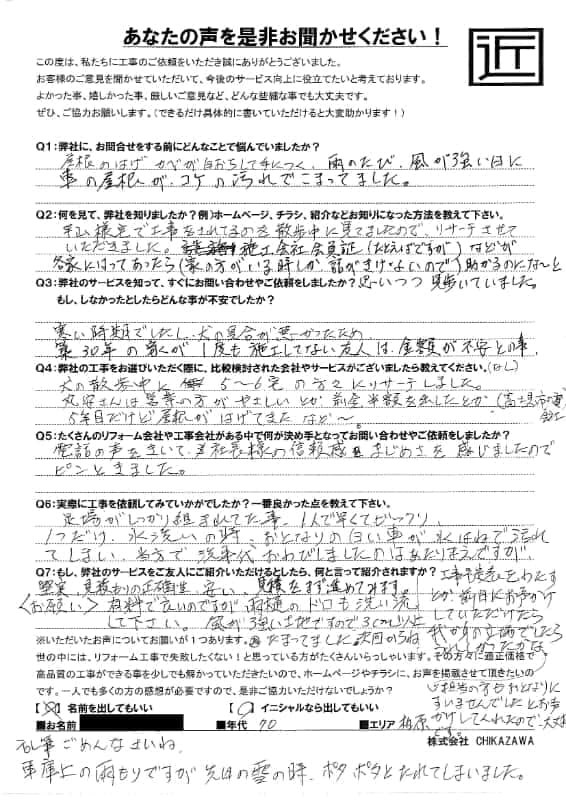 あなたの声を是非お聞かせください！
近
この度は、私たちに工事のご依頼をいただき誠にありがとうございました。
お客様のご意見を聞かせていただいて、今後のサービス向上に役立てたいと考えております。
よかった事、嬉しかった事、厳しいご意見など、どんな些細な事でも大丈夫です。
ぜひ、ご協力お願いします。（できるだけ具体的に書いていただけると大変助かります！）
Q1：弊社に、お問合せをする前にどんなことで悩んでいましたか？
屋根のはげ カベが白おちして手につく、雨のたび、風が強い日に
車の屋根が、コケの汚れでこまってました。
Q2：何を見て、弊社を知りましたか？例）ホームページ、チラシ、紹介などお知りになった方法を教えて下さい。
様宅で工事をされてるのを散歩中に見てましたので、リサーチさせて
いただきました。施工会社会員証（たとえばですが）などが
各家にはってあったら（家の方がいる時しか話がきけないので）助かるのになーと
Q3：弊社のサービスを知って、すぐにお問い合わせやご依頼をしましたか？思いつつ見歩いていました。
もし、しなかったとしたらどんな事が不安でしたか？
寒い時期でしたし、犬の具合が悪かったため
築30年の我が1度も施工してない友人は、金額が不安との事、
Q4：弊社の工事をお選びいただく際に、比較検討された会社やサービスがございましたら教えてください。（なし）
犬の散歩中に 5～6宅の方々にリサーチしました。
さんは営業の方がやさしいとか 前金半額を出したとか
5年目だけど屋根がはげてきた など～。
Q5：たくさんのリフォーム会社や工事会社がある中で何が決め手となってお問い合わせやご依頼をしましたか？
電話の声をきいて、社長様の信頼感、まじめさを感じましたので
ピンときました。
Q6：実際に工事を依頼してみていかがでしたか？一番良かった点を教えて下さい。
足場がしっかり組まれてた事、1人で早くてビックリ、
1つだけ、水洗いの時、おとなりの白い車が水はねで汚れ
てしまい、当方で洗車代おわびしましたのはあたりまえですが
Q7：もし、弊社のサービスをご友人にご紹介いただけるとしたら、何と言って紹介されますか？
堅実、見積もりの正確性、安い、見積をまず進めてみます。
〈お願い〉有料で良いのですが雨樋のドロも洗い流
して下さい。風が強い土地ですので3cm以上
たまってました 次回からね
工事を
とか前日にお声かけ
していただけたら
我が身の立場でしたら
うれしかったかな
※いただいたお声についてお願いが1つあります。
世の中には、リフォーム工事で失敗したくない！と思っている方がたくさんいらっしゃいます。その方々に適正価格で
高品質の工事ができる事を少しでも解かっていただきたいので、ホームページやチラシに、お声を掲載させて頂きたいの
です。一人でも多くの方の感想が必要ですので、是非ご協力いただけないでしょうか？
担当の方もおとなりに
すいませんでしたとお声
かけしてくれたので大丈夫
です。
【 】名前を出してもいい 【 】イニシャルなら出してもいい
■お名前 ■年代 70 ■エリア 柏原
株式会社 CHIKAZAWA
乱筆ごめんなさいね。
車庫上の雨もりですが 先日の雪の時、ポタポタとたれてしまいました。